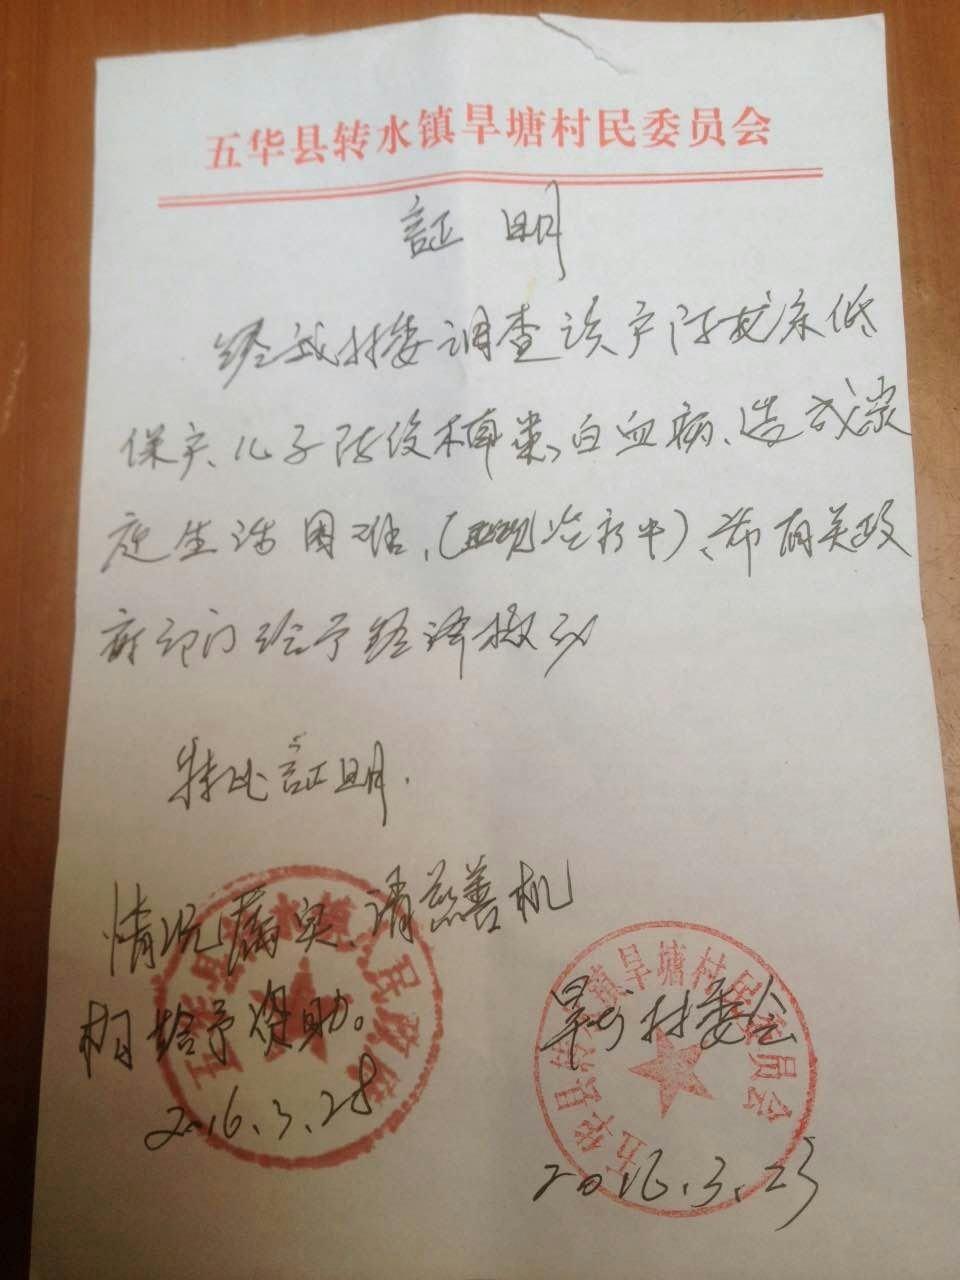 五华县转水镇旱塘村民委员会
証明
经我村委调查该户陈龙余低
保户、儿子陈俊楠患白血病、造成家
庭生活困难、(现治疗中)、希有关政
府部门给予经济援助
特此証明.
情况属实、请慈善机
构给予资助。
2016.3.28
五华县转水镇人民政府
旱塘村委会
五华县转水镇旱塘村民委员会
2016.3.23